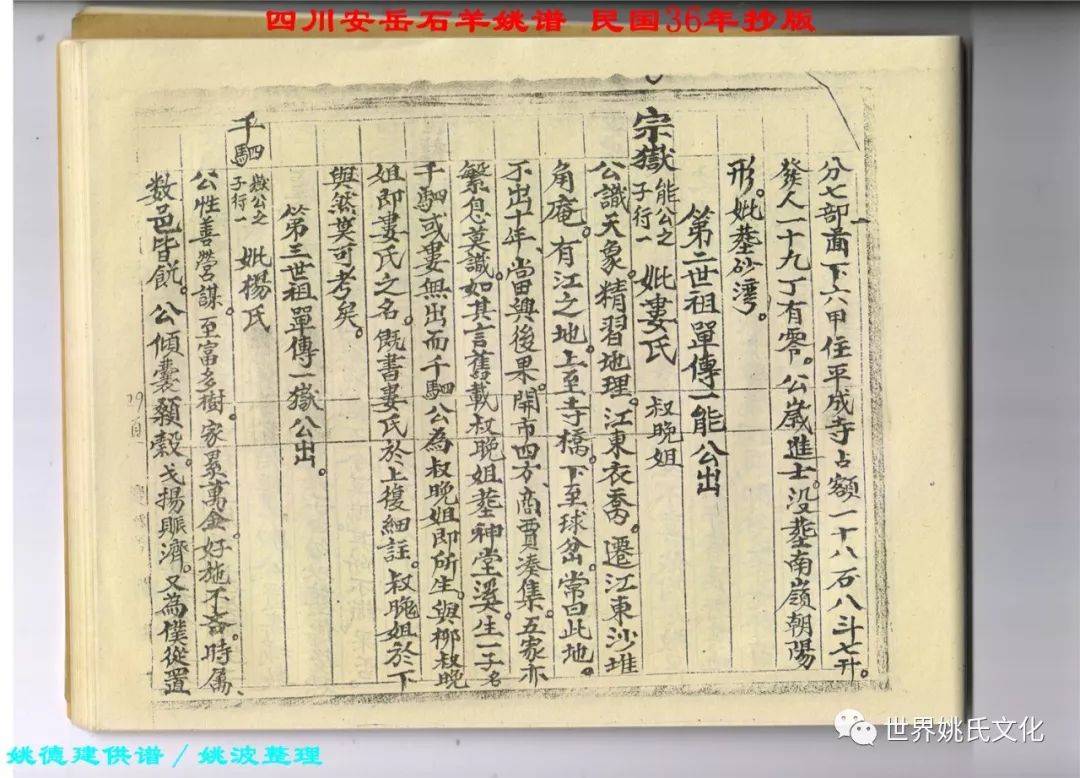 四川安岳石羊姚谱 民国36年抄版
分七部啚下六甲住平成寺占额一十八石八斗七升。
發人一十九丁有零。公歲進士。没塟南嶺朝陽
形。妣塟砂灣。
第二世祖單傳一能公出
宗嶽 能公之子行一 妣婁氏 叔晚姐
公識天象。精習地理。江東衣喬。遷江東沙堆
角庵。有江之地。上至寺橋。下至球岔。常曰此地。
不出十年、當興後果。開市四方、商賈湊集。五家亦
繁息莫識。如其言舊載叔晚姐塟神堂溪。生一子名
千駟或婁無出而千駟公為叔晚姐即所生。與柳叔晚
姐即婁氏之名。既書婁氏於上復細註。叔晚姐於下
與然莫可考矣。
第三世祖單傳一嶽公出。
千駟 嶽公之子行一 妣楊氏
公性善營謀。至富多樹。家累萬金。好施不吝。時属、
数邑皆飢。公傾囊頪榖。戈揚賑濟。又為僕從置
世界姚氏文化
姚德建供谱 / 姚波整理